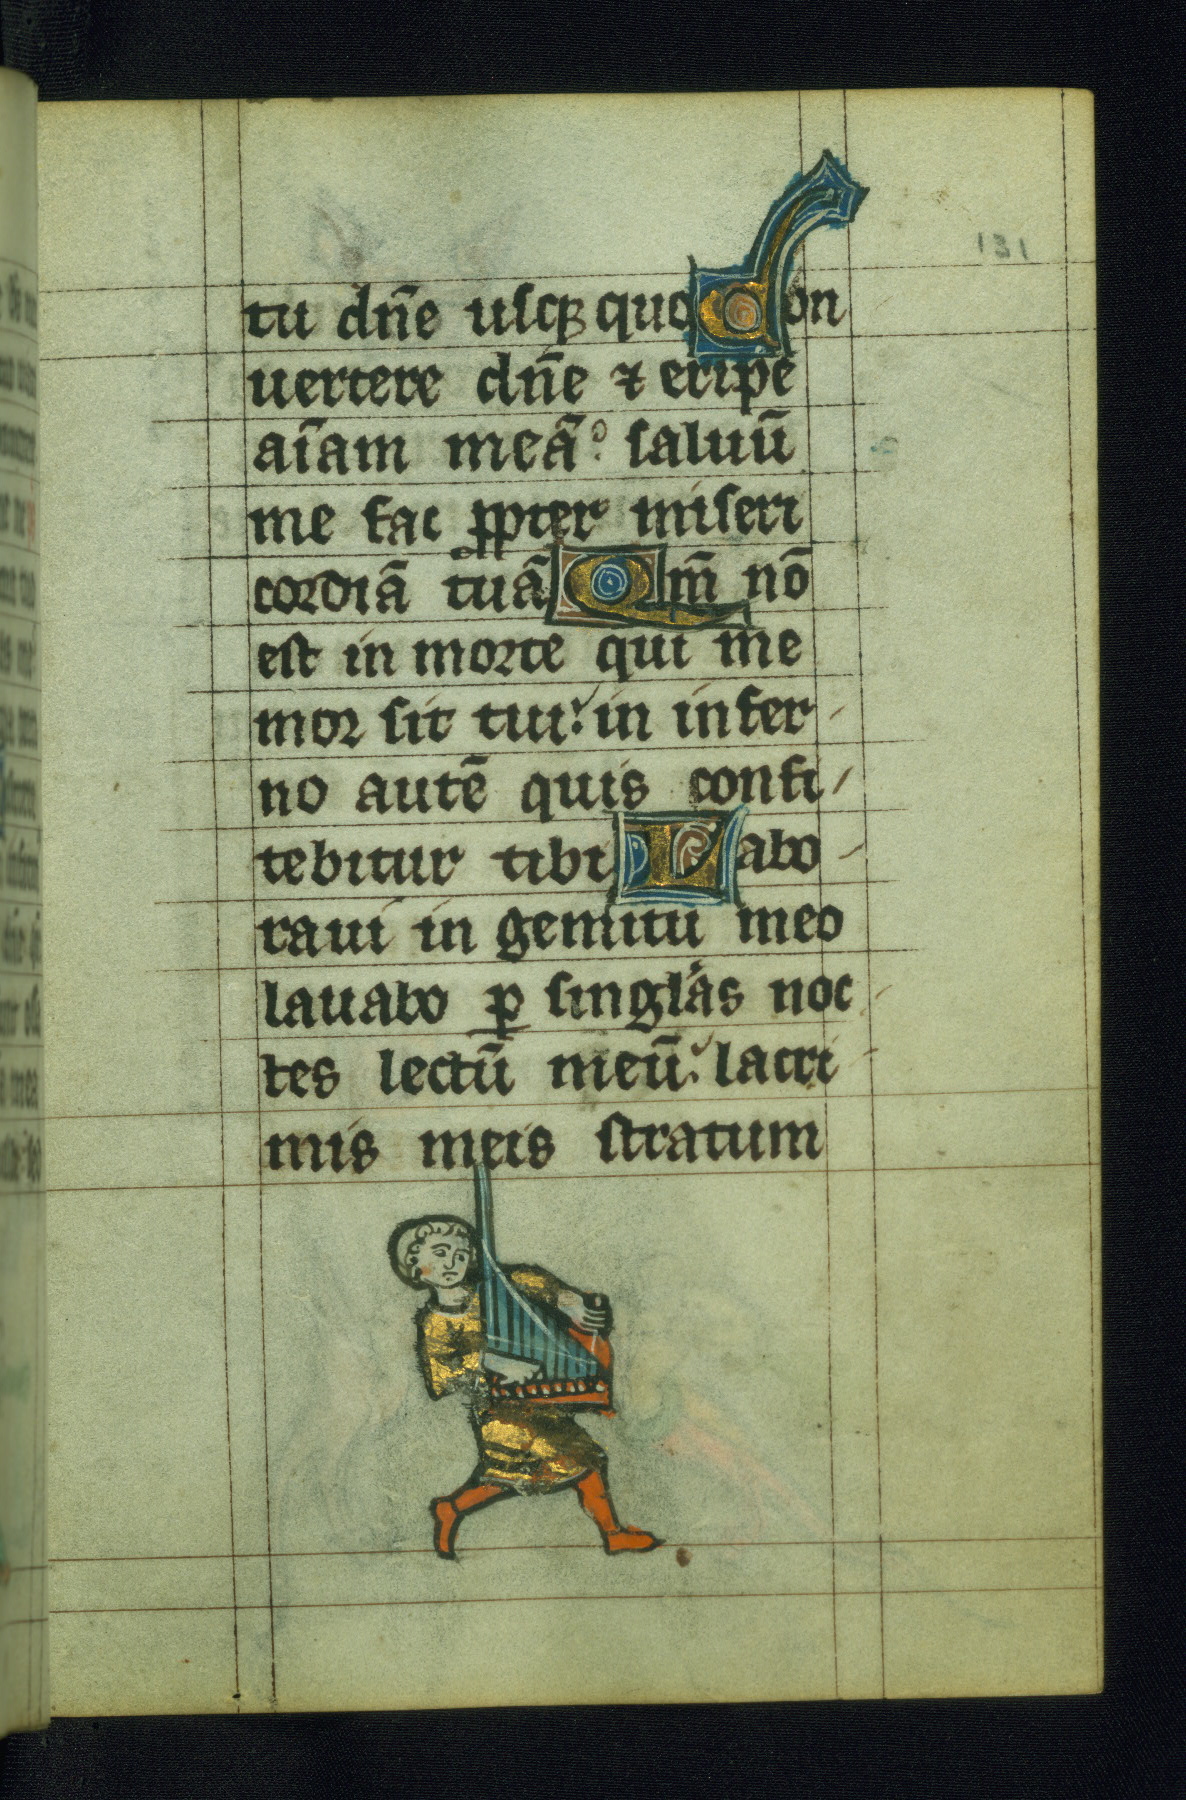 131
tu dn̄e usq̨ quo Con
uertere dn̄e ⁊ eripe
aīam meā. saluū
me fac ꝓpter miseri
cordiā tuā Qm̄ nō
est in morte qui me
mor sit tui: in infer
no autē quis confi
tebitur tibi Labo
raui in gemitu meo
lauabo ꝑ singlas noc
tes lectū meū: lacri
mis meis stratum